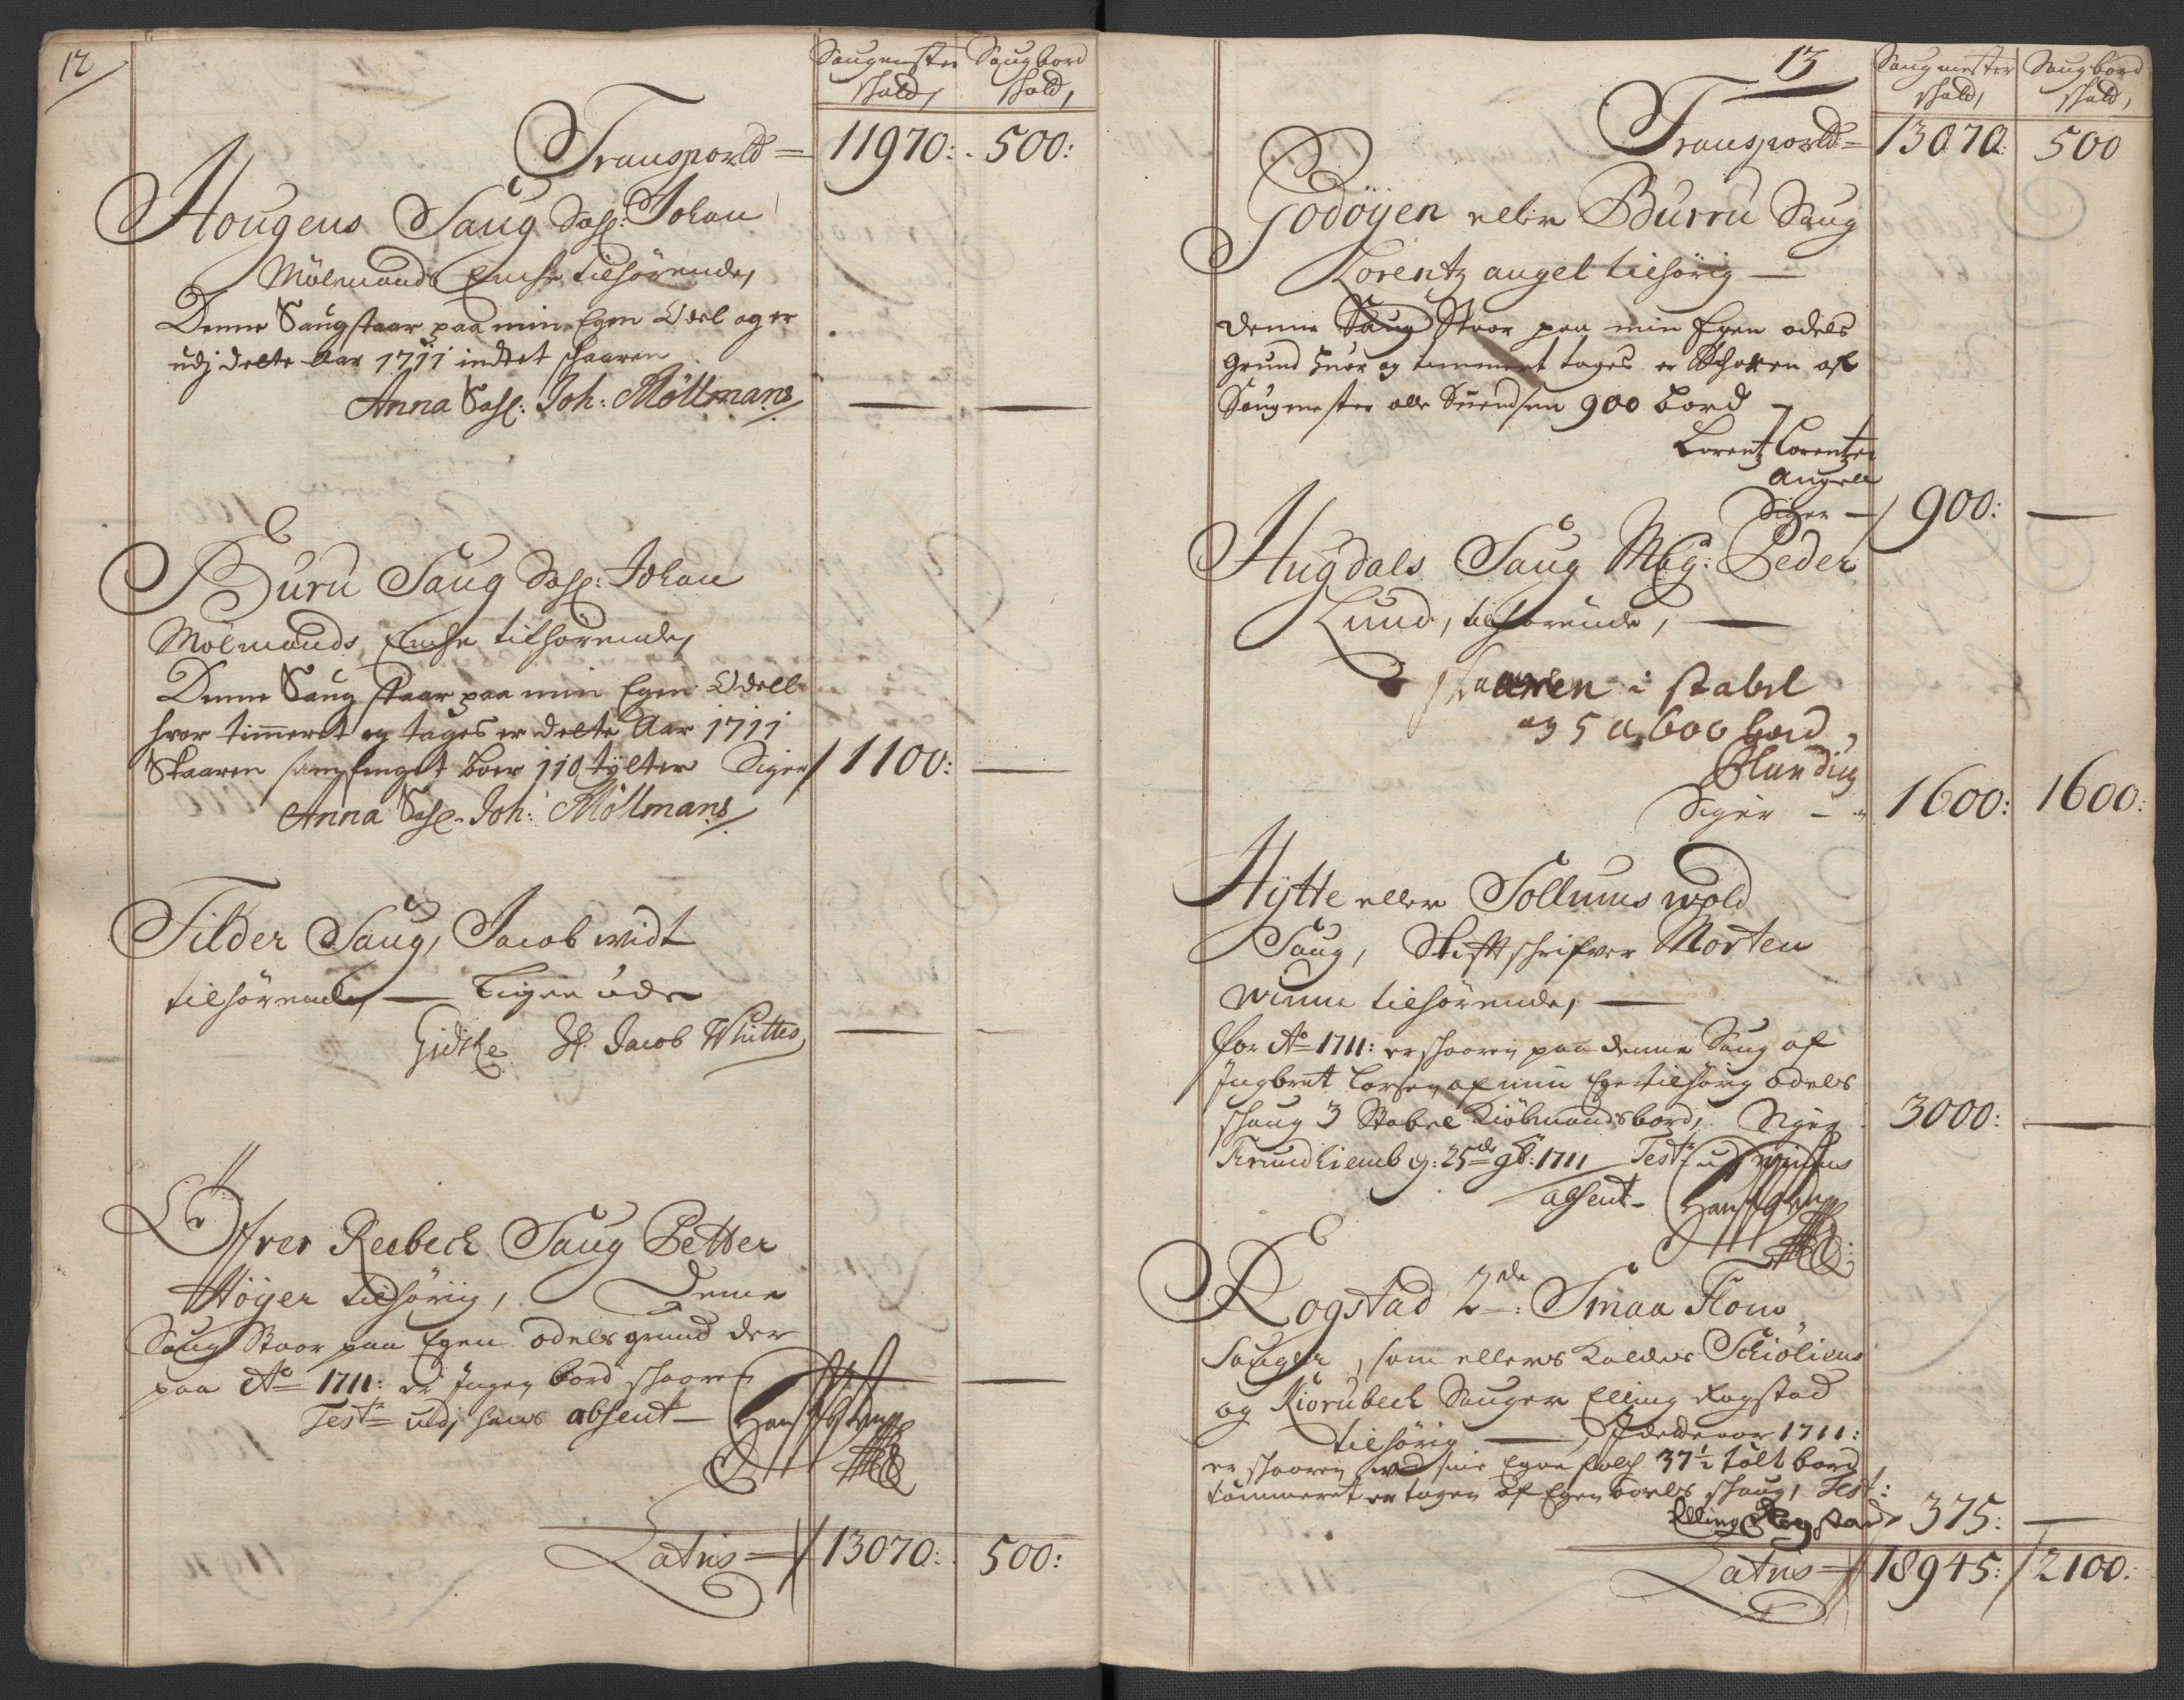 12
Saugmester Saugbord
schald, schald,
Transportd = 11970: 500:
Hougens Saug Sahl: Johan
Mölmands Enche tilhörende,
Denne Saug staar paa min Egen Odel og er
udj dette Aar 1711 indtet skaaren
Anna Sahl: Joh: Möllmans
Buru Saug Sahl: Johan
Mölmands Enche tilhörende,
Denne Saug staar paa min Egen Odell
hvor timmeret og tages er dette Aar 1711
Skaaren borr 110 tylter Siger 1100:
Anna Sahl. Joh: Möllmans
Tilder Saug, Jacob widt
tilhörende, — Ligger öde
Gidske Sl. Jacob Whittes
Öfver Reebech Saug Petter
Höyer tilhörig, Denne
Saug Staar paa Egen odels grund der
paa Ao 1711: er Ingen bord skaaren
Test udj hans absent —
Latus = 13070: 500:
13
Saugmester Saugbord
schald, schald,
Transportd = 13070: 500
Godöyen eller Burru Saug
Lorentz angel tilhörig —
denne Saug Staar paa min Egen odels
Grund huor og temmert tages er Schaaren af
Saugmester olle Suendsen 900 bord
Lorentz Lorentzen
Angell
Siger — 900: —
Hugdals Saug Mag: Peder
Lund, tilhörende, —
skaaren i stabel
og 5 a 600 bord,
Siger — 1600: 1600:
Hytte eller Sollums wold
Saug, Stiftschrifver Morten
winnu tilhörende, —
for Ao 1711: er skaaren paa denne Saug af
Ingbret Larsen af min Egetilhörig odels
skaug 3 Stabel Kiöbmandsbord, Siger 3000: —
Trundhiemb d: 25de 9b: 1711 Test: udj winnus
absent —
Rogstad 2de: Smaa Flom
Sauger, som ellers kaldes Schiöliens
og Kiorubech Sauger Elling Rogstad
tilhörig — I dette aar 1711:
er skaaren ved mine Egne folch 37½ tolt bord
tömmeret er tagen af Egen odels skaug, Test:
Elling Rogstad 375: —
Latus = 18945: 2100: